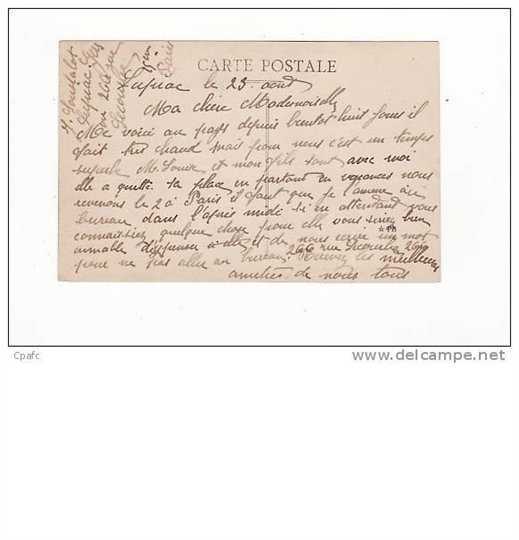 CARTE POSTALE
le 23 août
Ma chère Mademoiselle
Me voici au pays depuis bientot huit jours il
fait très chaud mais pour nous c'est un temps
superbe Me Louise et mon fils sont avec moi
elle a quitté sa place en partant en vacances nous
revenons le 2 à Paris il faut que je l'amene au
bureau dans l'après midi si en attendant vous
connaissiez quelque chose pour elle vous seriez bien
aimable d'ecrire à elle et de nous ecrire un mot
266 rue Lecourbe
pour ne pas aller au bureau. Recevez les meilleures
amitiés de nous tous
Paris
Cpafc
www.delcampe.net